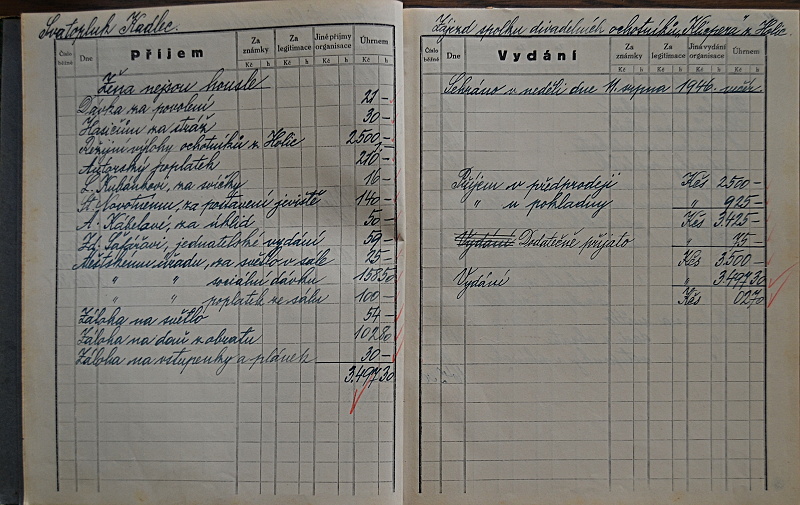 Svatopluk Kadlec.
Číslo běžné Dne Příjem Za známky Za legitimace Jiné příjmy organisace Úhrnem
Kč h Kč h Kč h Kč h
Žena nejsou housle
Dávka za povolení 21 –
Hasičům za stráž 30 –
Režijní výlohy ochotníků z Holic 2500 –
Autorský poplatek 210 –
L. Kubánkovi, za svíčky 16 –
St. Novotnému, za postavení jeviště 140 –
A. Kábelové, za úklid 50 –
Zd. Šafářovi, jednatelské vydání 59 –
Městskému úřadu, za světlo v sále 25 –
" " sociální dávku 158 50
" " poplatek ze sálu 100 –
Záloha na světlo 54 –
Záloha na daň z obratu 102 80
Záloha na vstupenky a plánek 30 –
3.497 30
Zájezd spolku divadelních ochotníků „Klicpera" z Holic
Číslo běžné Dne Vydání Za známky Za legitimace Jiná vydání organisace Úhrnem
Kč h Kč h Kč h Kč h
Sehráno v neděli dne 11. srpna 1946.
Příjem v předprodeji Kčs 2500 –
" u pokladny " 925 –
Kčs 3.425 –
Vydání Dodatečně přijato " 75 –
Kčs 3.500 –
Vydání " 3.497 30
Kčs 02 70